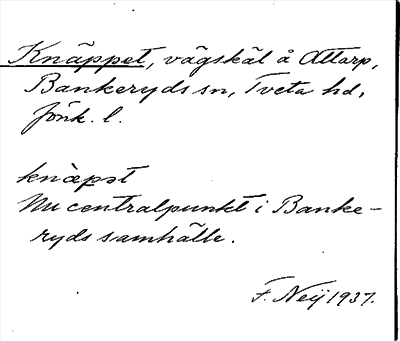 Knäppet, vägskäl å Attarp,
Bankeryds sn, Tveta hd,
Jönk. l.
knäpət
Nu centralpunkt i Banke-
ryds samhälle.
F. Neij 1937.